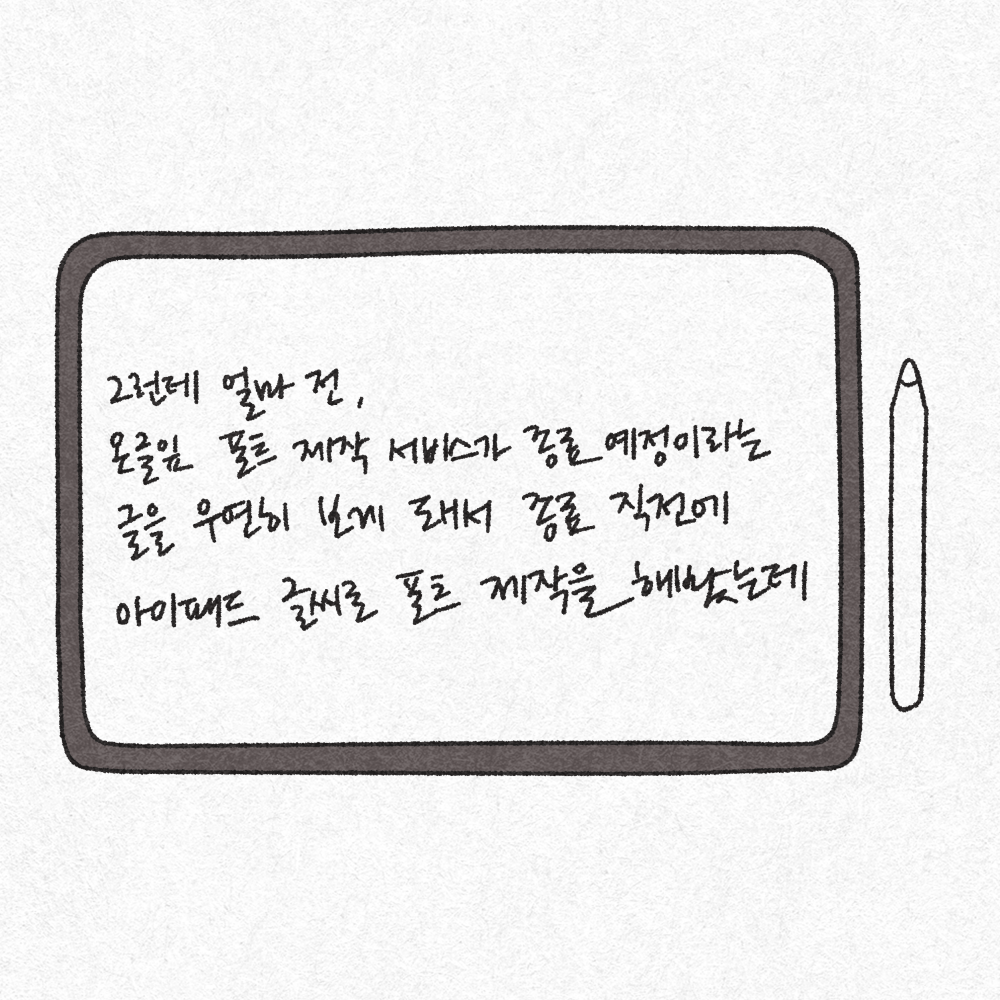 그런데 얼마 전,
온글잎 폰트 제작 서비스가 종료 예정이라는
글을 우연히 보게 돼서 종료 직전에
아이패드 글씨로 폰트 제작을 해봤는데